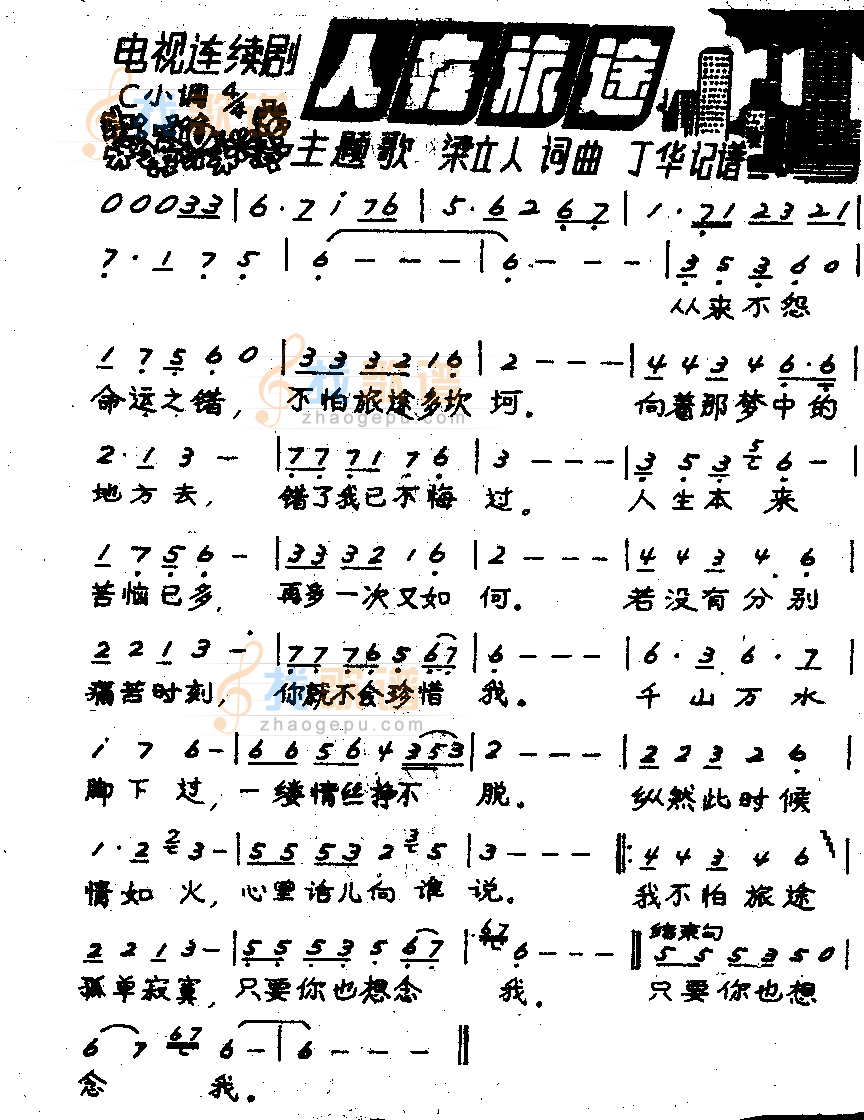 电视连续剧 人在旅途
C小调 4/4
主题歌 梁立人 词曲 丁华记谱
0 0 0 3 3 | 6 · 7 i 7 6 | 5 · 6 2 6 7 | 1 · 7 1 2 3 2 1 |
7 · 1 7 5 | 6 - - - | 6 - - - | 3 5 3 6 0 |
从来不怨
1 7 5 6 0 | 3 3 3 2 1 6 | 2 - - - | 4 4 3 4 6 · 6 |
命运之错, 不怕旅途多坎坷。 向着那梦中的
2 · 1 3 - | 7 7 7 1 7 6 | 3 - - - | 3 5 3 5 6 - |
地方去, 错了我已不悔过。 人生本来
1 7 5 6 - | 3 3 3 2 1 6 | 2 - - - | 4 4 3 4 · 6 |
苦恼已多, 再多一次又如何。 若没有分别
2 2 1 3 - | 7 7 7 6 5 6 7 | 6 - - - | 6 · 3 6 · 7 |
痛苦时刻, 你就不会珍惜我。 千山万水
i 7 6 - | 6 6 5 6 4 3 5 3 | 2 - - - | 2 2 3 2 6 |
脚下过, 一缕情丝挣不脱。 纵然此时候
1 · 2 2 3 - | 5 5 5 3 2 3 5 | 3 - - - ‖: 4 4 3 4 6 |
情如火, 心里话儿向谁说。 我不怕旅途
结束句
2 2 1 3 - | 5 5 5 3 5 6 7 | 6 7 6 - - - ‖ 5 5 5 3 5 0 |
孤单寂寞, 只要你也想念我。 只要你也想
6 7 6 7 6 - | 6 - - - ‖
念我。
找歌谱
zhaogepu.com
找歌谱
zhaogepu.com